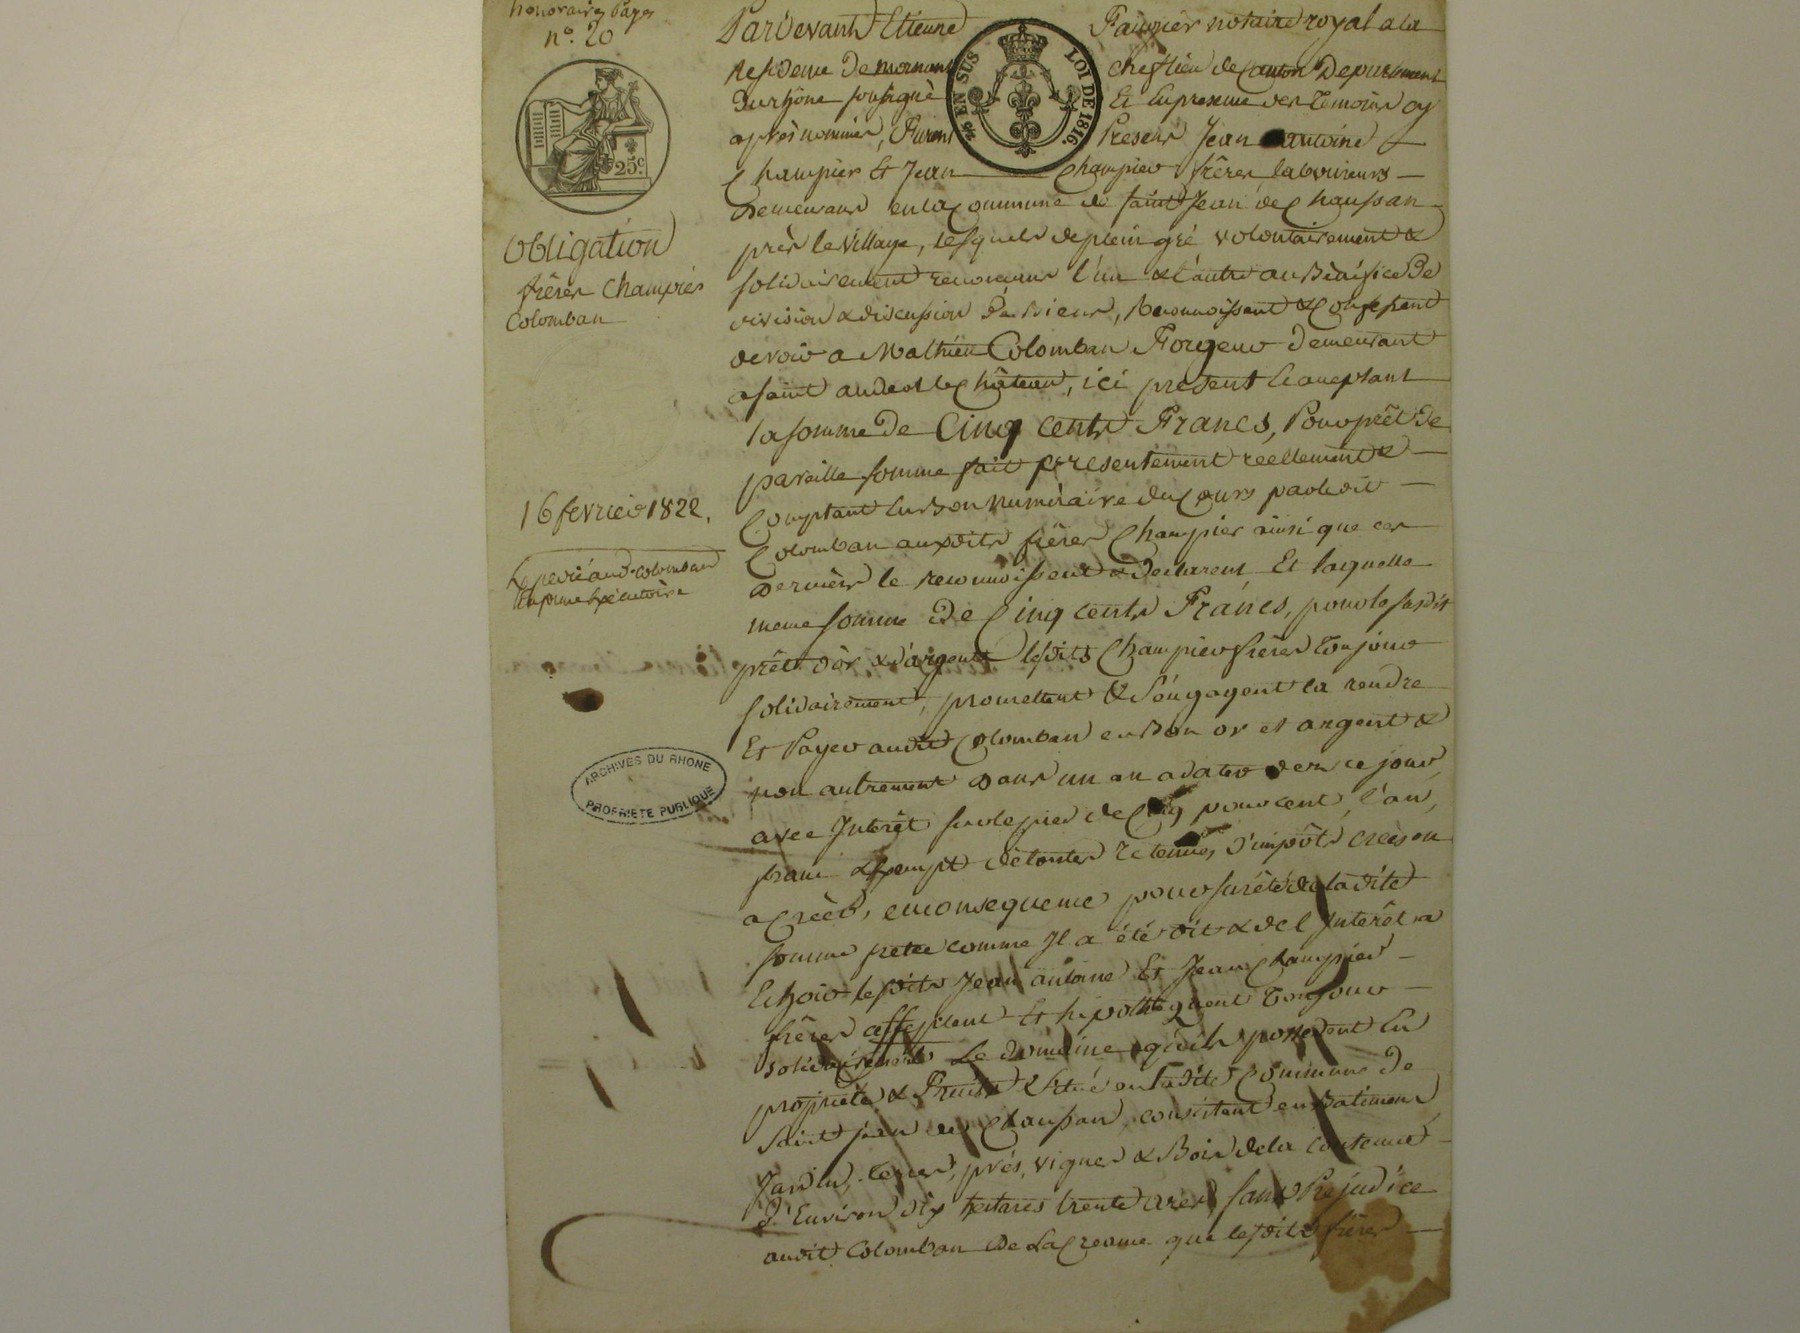 honoraires Payés
n°. 20
25c.
Obligation
frères Champier
Colomban
16 février 1822.
Expedié aud. Colomban
en forme Exécutoire
ARCHIVES DU RHONE
PROPRIETE PUBLIQUE
EN SUS LOI DE 1816.
Pardevant Etienne notaire royal a la
residence de mornant chef lieu de Canton Departement
du rhône soussigné Et En presence des temoins cy
après nommés, Furent Presens Jean antoine
Champier Et Jean Champier frères laboureurs
Demeurans en la Commune de saint Jean de Chaussan
près le village, lesquels de plein gré volontairement &
solidairement renonçans l'un & l'autre au Bénéfice De
division & discussion De Biens, Reconnoissent & Confessent
devoir a Mathieu Colomban Forgeur Demeurant
a saint andeol le Château, ici présent Et acceptant
la somme De Cinq cents Francs, Pour prêt de
pareille somme fait presentement reellement &
Comptant En Bon numéraire du Cours par ledit
Colomban auxdits frères Champier ainsi que ces
Derniers le reconnoissent & Declarent Et laquelle
meme somme De Cinq cents Francs, pour le susdit
prêt d'or & d'argent lesdits Champier frères Toujours
solidairement, promettent & s'engagent la rendre
Et Payer audit Colomban en Bon or et argent &
non autrement Dans un an a dater de ce jour,
avec Interêt sur le pied de Cinq pour cent, l'an,
franc & Exempt de toutes retenues, D'impôts créés ou
a Créer, en consequence pour sureté de ladite
somme pretée comme Il a été dit & de l'Interêt a
Echoir lesdits Jean antoine Et Jean Champier
frères affectent Et hipothequent Toujours
solidairement Le Domaine qu'ils possedent En
propriété & situé en ladite Commune De
Saint jean de Chaussan, consistant en Batimens
Jardin, terres, prés, vignes & Bois de la contenue
D'Environ dix hectares trente ares, sans Prejudice
audit Colomban De la Creance que lesdits frères